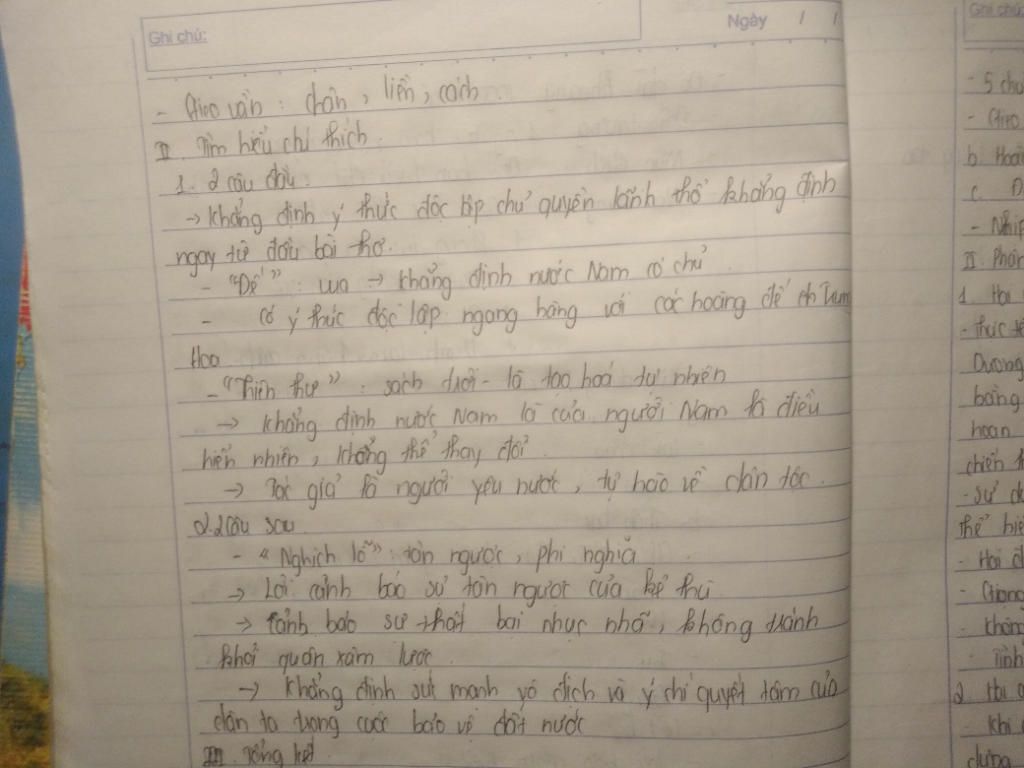 Ghi chú:
Ngày / /
- Gieo vần: chân, liền, cách.
II. Tìm hiểu chú thích.
1. 2 câu đầu:
→ Khẳng định ý thức độc lập chủ quyền lãnh thổ khẳng định
ngay từ đầu bài thơ.
- "Đế": vua → khẳng định nước Nam có chủ.
- Có ý thức độc lập ngang hàng với các hoàng đế ch Trung
Hoa
- "Thiên thư": sách trời - là tạo hoá tự nhiên
→ khẳng định nước Nam là của người Nam là điều
hiển nhiên, không thể thay đổi.
→ Tác giả là người yêu nước, tự hào về dân tộc.
2. 2 câu sau
- "Nghịch lỗ": tàn ngược, phi nghĩa
→ Lời cảnh báo sự tàn ngược của kẻ thù
→ Cảnh báo sự thất bại nhục nhã, không tránh
khỏi quân xâm lược.
→ Khẳng định sức mạnh vô địch và ý chí quyết tâm của
dân ta trong cuộc bảo vệ đất nước
III. Tổng kết
Ghi chú:
- 5 chữ
- Gieo
b. Hoàn
c. Đ
- Nhịp
II. Phân
1. Hai
- thực tế
Dương
bằng
hoan
chiến
- sử dụ
thể hiện
- Hai
- Giọng
- khẳng
- tình
2. Hai c
- khi
dựng